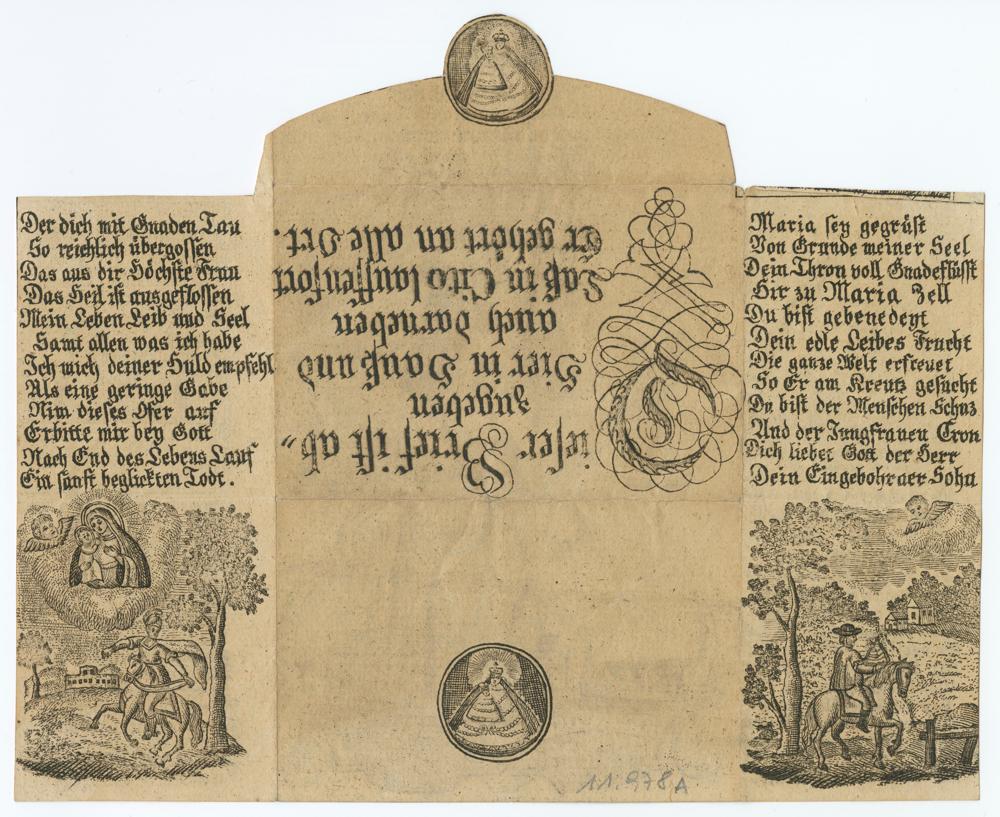 Der dich mit Gnaden Tau
So reichlich übergossen
Das aus dir Höchste Frau
Das Heil ist ausgeflossen
Mein Leben Leib und Seel
Samt allen was ich habe
Ich mich deiner Huld empfehl
Als eine geringe Gabe
Nim dieses Ofer auf
Erbitte mir bey Gott
Nach End des Lebens Lauf
Ein sanft beglickten Todt.
Dieser Brief ist ab„
zugeben
Hier in Hauß und
auch darneben
Laß in Cito lauffen fort
Er gehört an alle Ort.
Maria sey gegrüst
Von Grunde meiner Seel
Dein Thron voll Gnadeflüsst
Hir zu Maria Zell
Du bist gebenedeyt
Dein edle Leibes Frucht
Die ganze Welt erfreuet
So Er am Kreutz gesucht
Du bist der Menschen Schuz
Und der Jungfrauen Cron
Dich liebet Gott der Herr
Dein Eingebohrner Sohn
11.978A